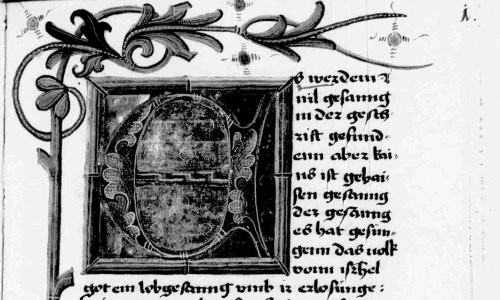 i.
Es werdenn
vil gesanng
in der gesch
rift gefund
enn aber kai-
ns ist gehai-
sen gesanng
der gesanng
es hat gesun-
genn das volk
vonn isrhel
got ein lobgesanng vmb ir erlosunge :